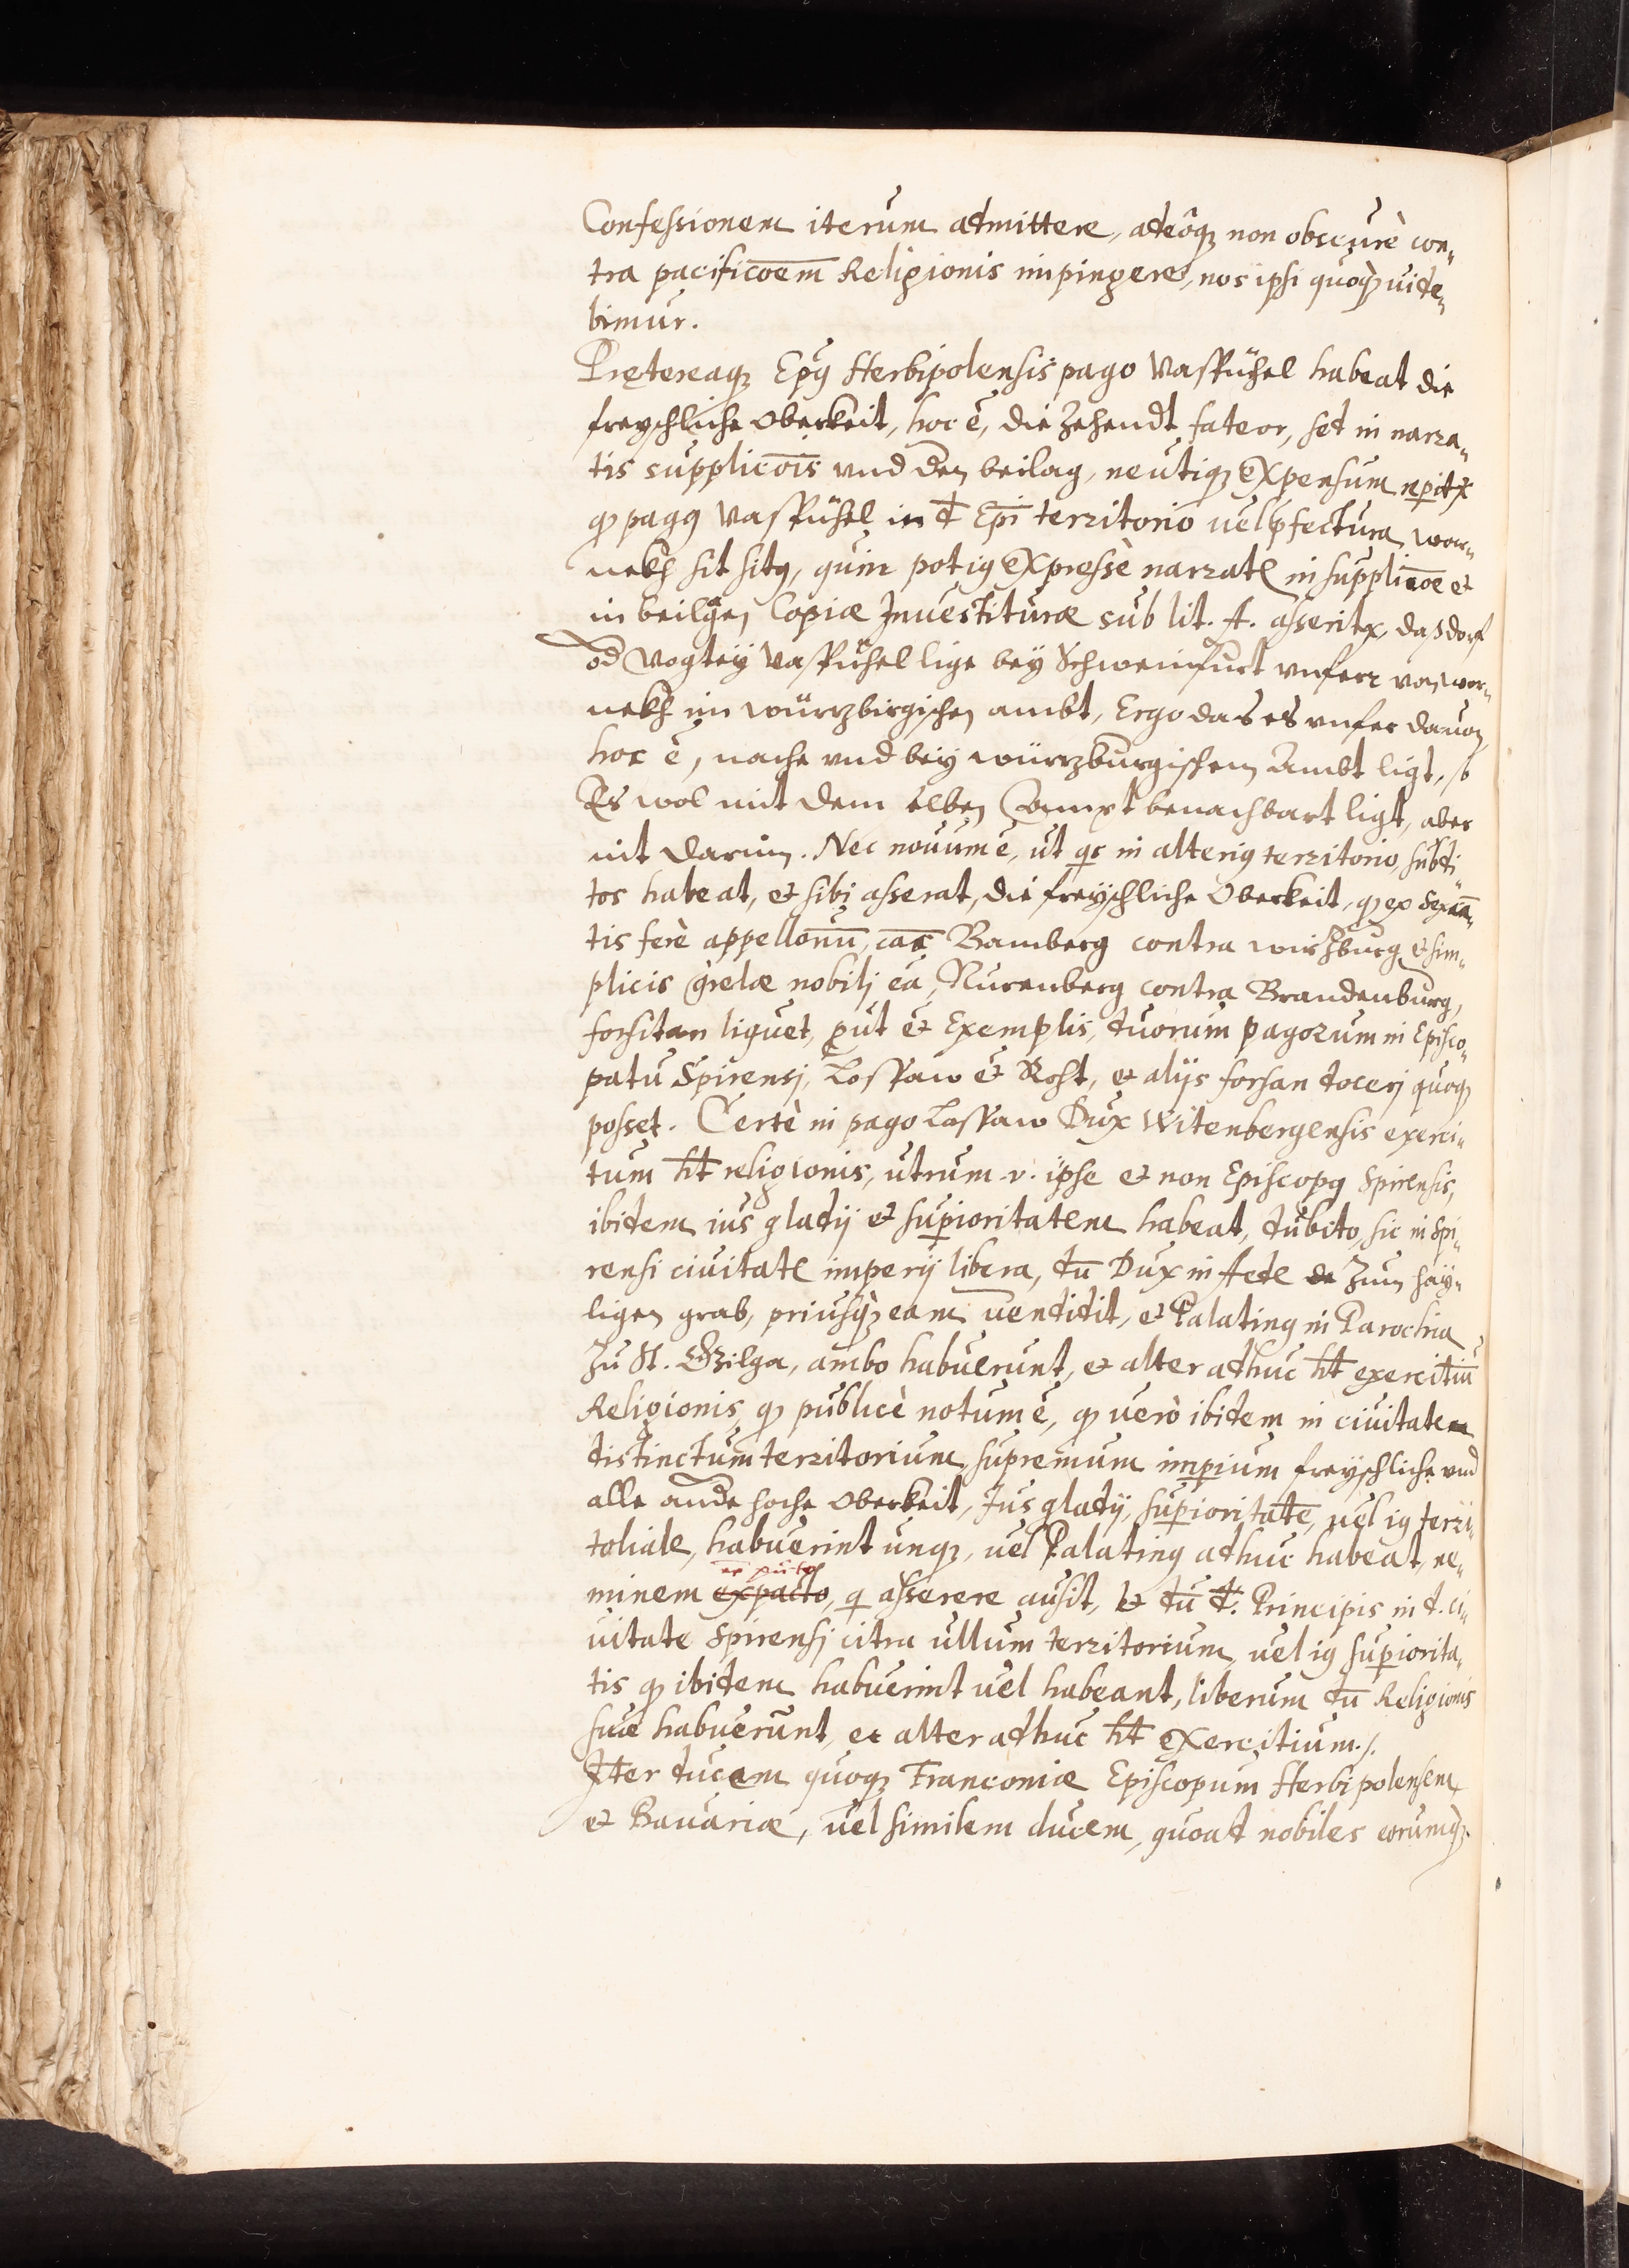 Confessionem iterum admittere, adeoq₃ non obscurè con„
tra pacificōem Religionis impingere, nos ipsi quoq₃ uide„
bimur.
Prętereaq₃ Epūs Herbipolensis pago Vasbühel habeat die
freyschliche Oberkeit, hoc ē, die Zehendt fateor, sed in narra„
tis supplicōis vnd den beilag, neutiq₃ expensum
ꝙ pagus Vasbühel in d. Epī territorio uel pfectura wer„
nekh sit situs, quin potius expressè narrate in supplicōe et
in beilagen Copiæ Inuestituræ sub lit. A. asserit, daß dorf
od Vogtey Vasbühel lige bey Schweinfurt vnferr von wer„
nekh im würzbirgischen ambt, Ergo das es vnfer dauon
hoc ē, nache vnd bey würzburgischem Ambt ligt, so
Es wol mit dem selben Campt benachbart ligt, aber
nit darin. Nec nouum ē, ut qs in alterius territorio, subdi„
tos habeat, et sibi asserat, die freyschliche Oberkeit, ꝙ ex
tis ferè appellonū, cāe Bamberg contra wirzburg et sim„
plicis qrelæ nobilj eā, Nurenberg contra Brandenburg,
forsitan liquet, put et Exemplis, duorum pagorum in Episco„
patu Spirensj, Lossaw et Rost, et alijs forsan docerj quoq₃
posset. Certè in pago Lossaw Dux Witenbergensis exerci„
tum ht religionis, utrum .v. ipse et non Episcopus Spirensis,
ibidem ius gladij et supioritatem habeat, dubito, sic in Spi„
rensi ciuitate imperij libera, dū Dux in Aede de Zum hay„
ligen grab, priusq₃ eam uendidit, et Palatinus in Parochia
Zu St. Gilga, ambo habuerunt, et alter adhuc ht exercitiū
Religionis, ꝙ publicè notum ē, ꝙ uerò ibidem in ciuitate
distinctum territorium, supremum impium freyschliche vnd
alle ande hoche Oberkeit, Jus gladij, supioritatē, uel ius terri„
toliale, habuerint unq₃, uel Palatinus adhuc habeat, ne„
minem expacto, q asserere ausit, et dū d. Principis in d. ci„
uitate Spirensj citra ullum territorium, uel ius supiorita„
tis ꝙ ibidem habuerint uel habeant, liberum dū Religionis
suæ habuerunt, et alter adhuc ht exercitium ./.
Iter ducem quoq₃ Franconiæ Episcopum Herbipolensem
et Bauariæ, uel similem ducem, quoad nobiles eorumq₃.